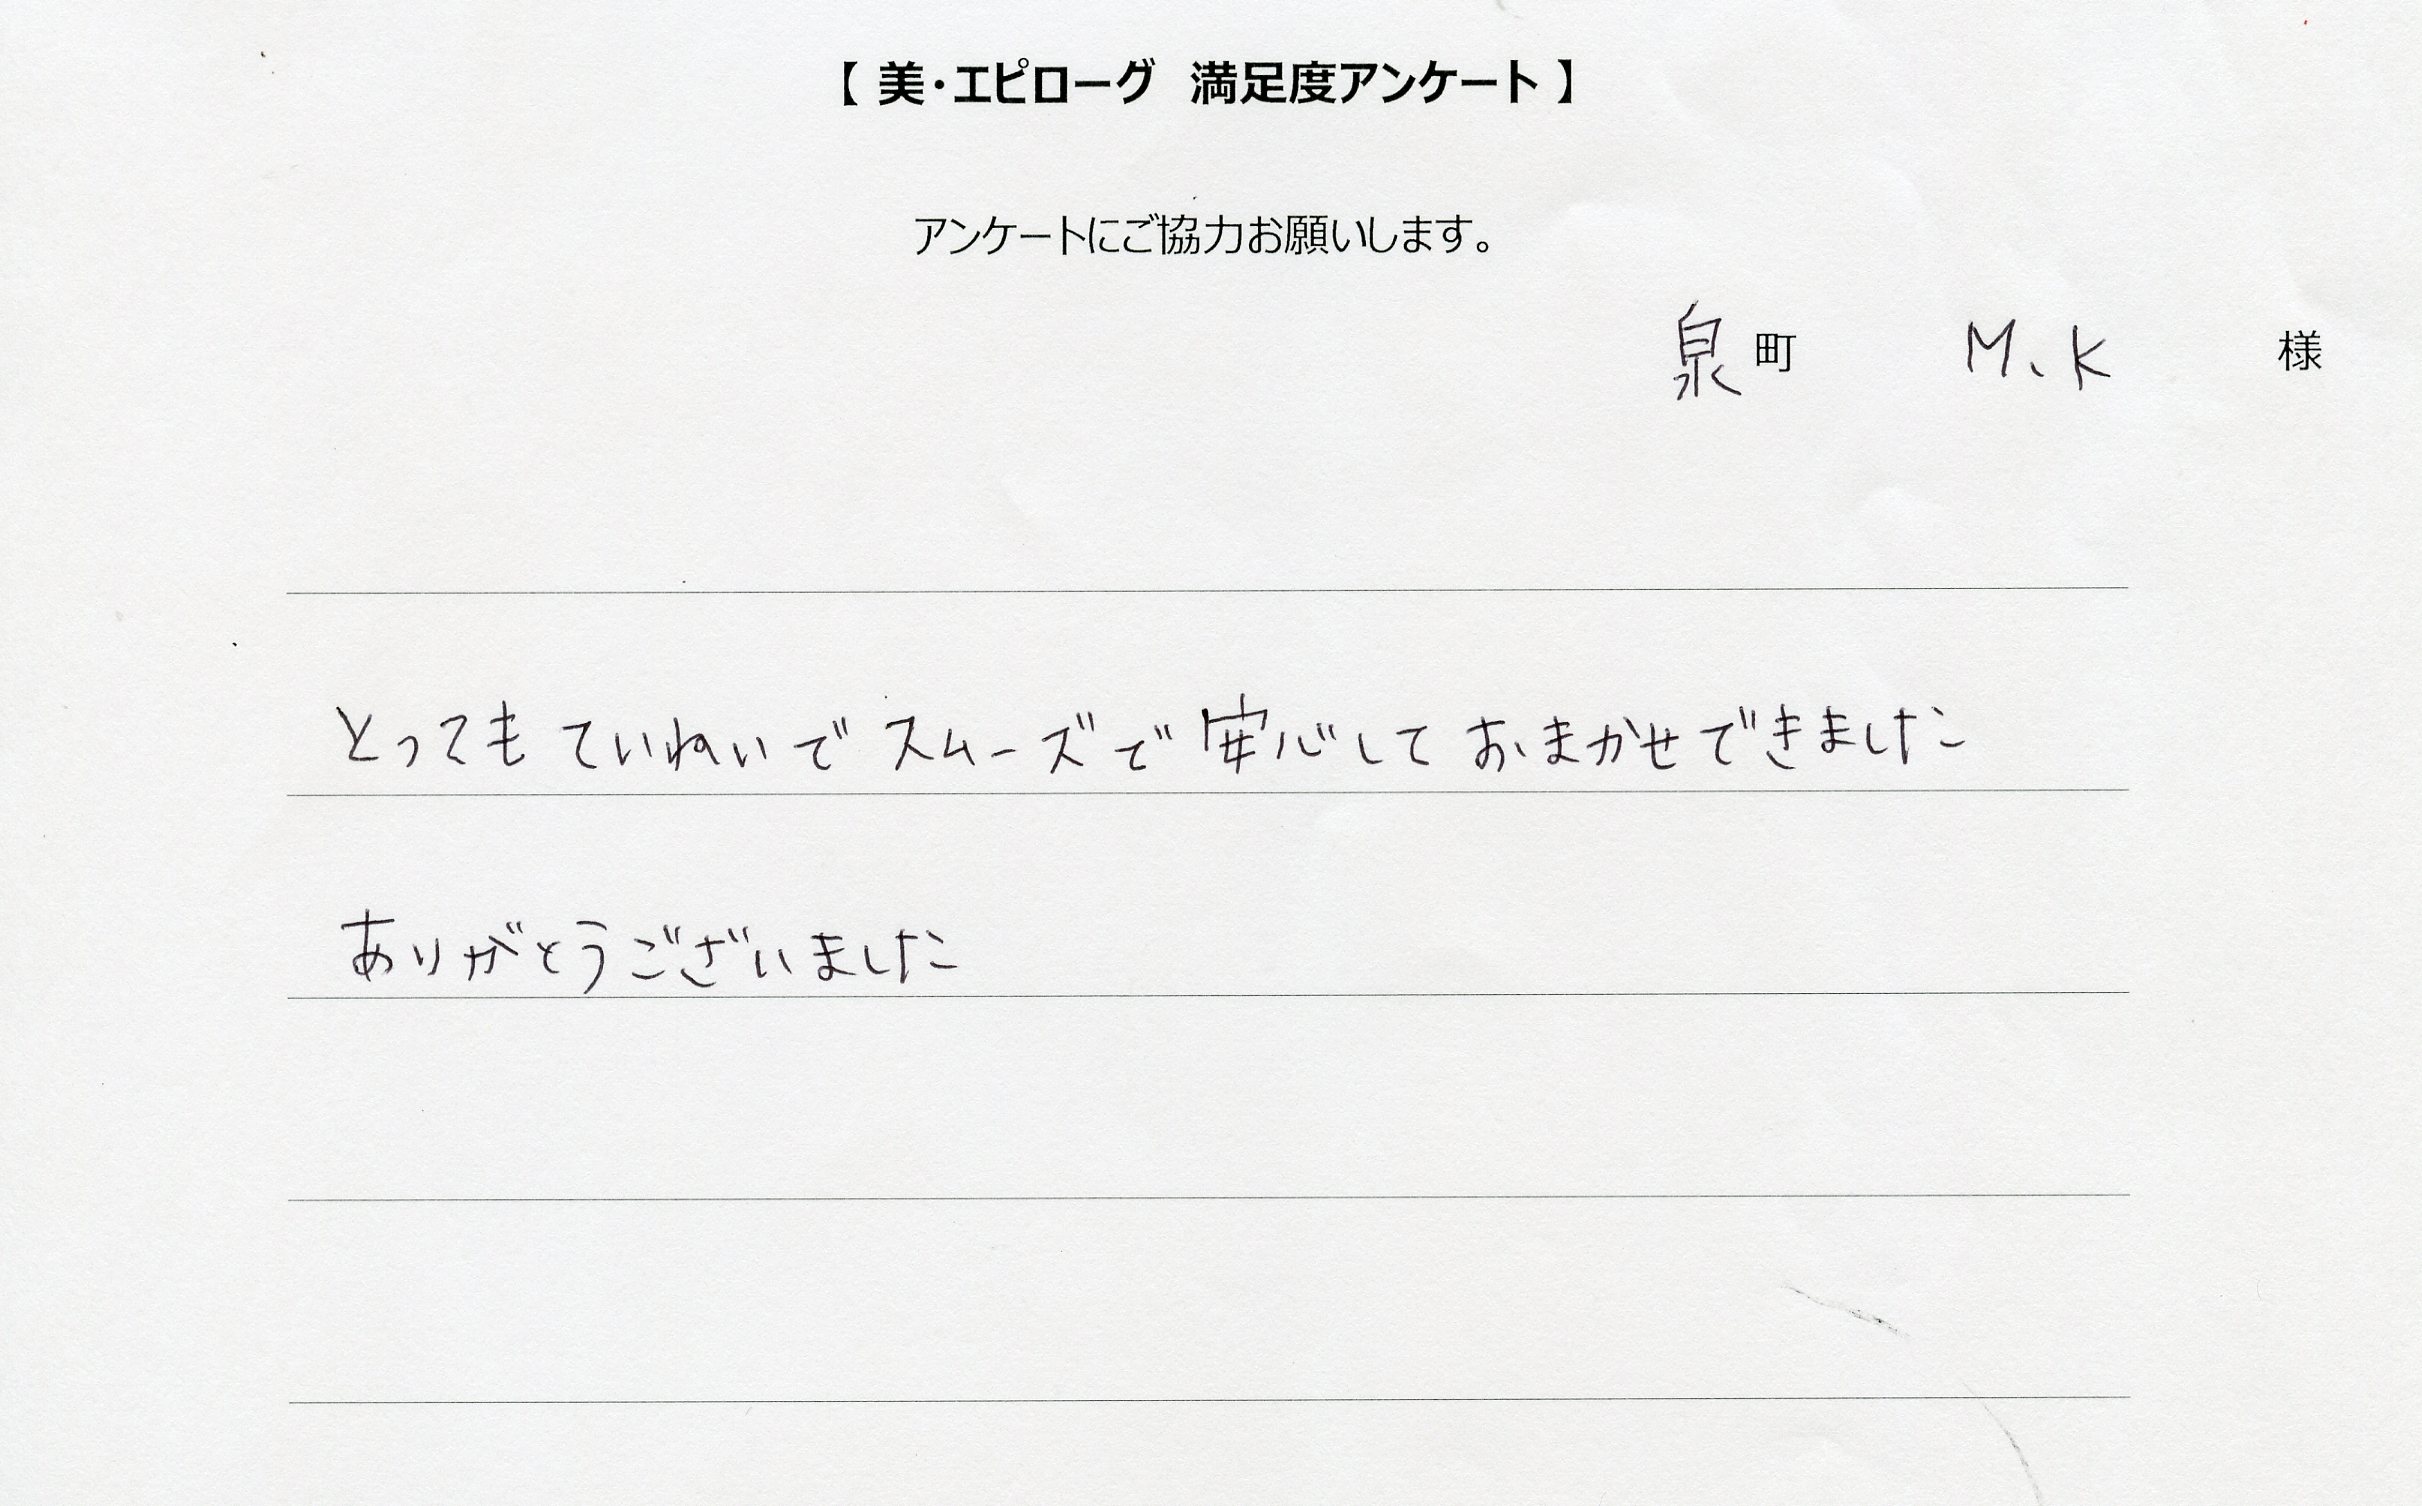 【 美・エピローグ 満足度アンケート 】
アンケートにご協力お願いします。
泉町 M.K 様
とってもていねいでスムーズで安心しておまかせできました
ありがとうございました